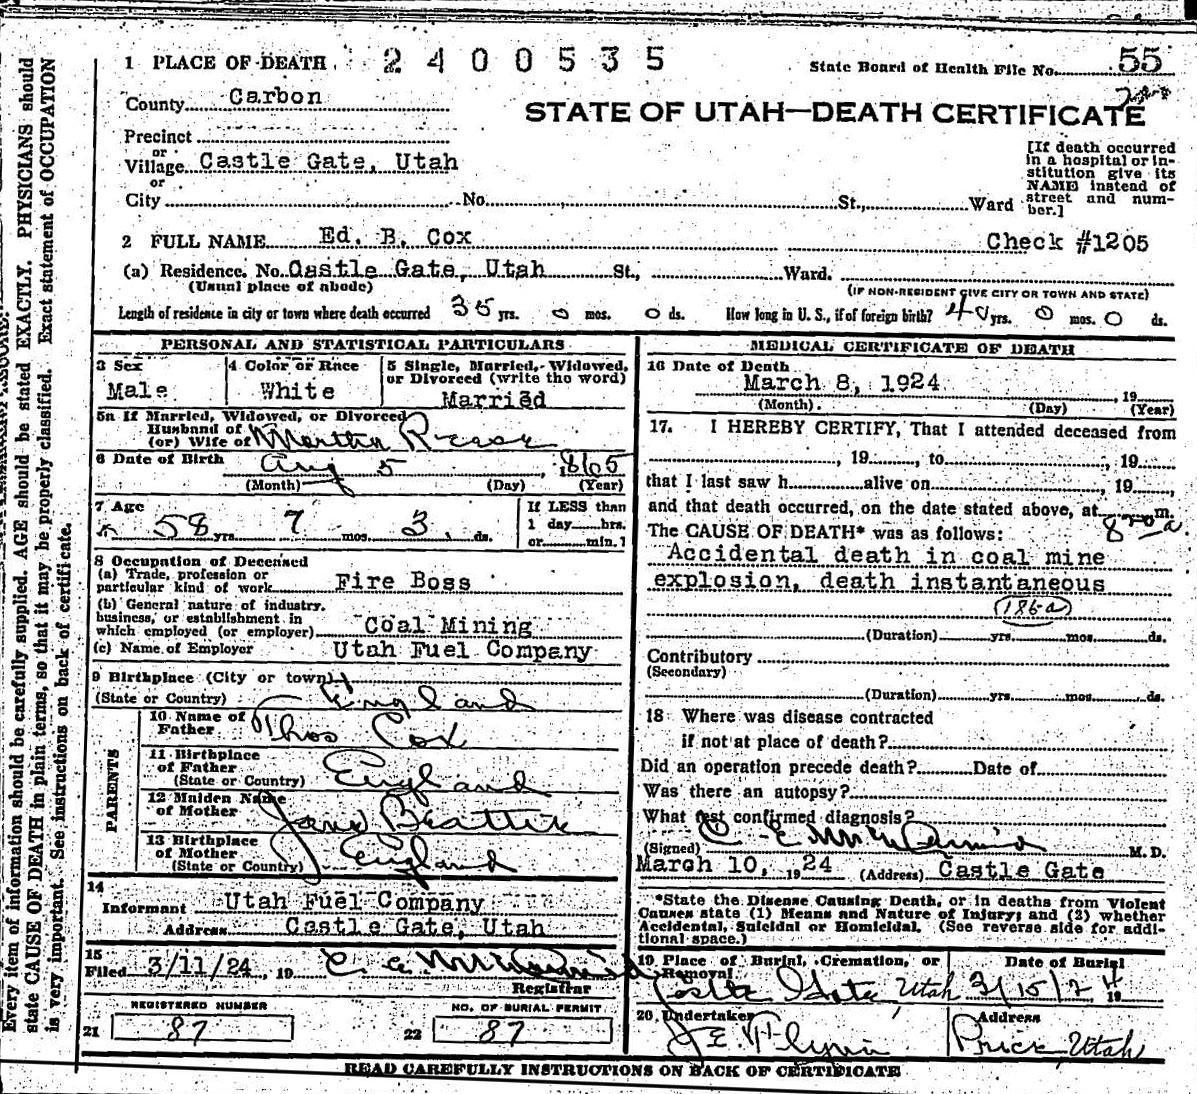 1 PLACE OF DEATH 2400535 State Board of Health File No. 55
County Carbon
STATE OF UTAH—DEATH CERTIFICATE
Precinct
or
Village Castle Gate, Utah
or
City No. St., Ward
[If death occurred
in a hospital or in-
stitution give its
NAME instead of
street and num-
ber.]
2 FULL NAME Ed. B. Cox Check #1205
(a) Residence. No. Castle Gate, Utah St., Ward.
(Usual place of abode) (IF NON-RESIDENT GIVE CITY OR TOWN AND STATE)
Length of residence in city or town where death occurred 35 yrs. 0 mos. 0 ds. How long in U. S., if of foreign birth? 40 yrs. 0 mos. 0 ds.
PERSONAL AND STATISTICAL PARTICULARS
3 Sex
Male
4 Color or Race
White
5 Single, Married, Widowed,
or Divorced (write the word)
Married
5a If Married, Widowed, or Divorced
Husband of
(or) Wife of Martha Reese
6 Date of Birth Aug 5 1865
(Month) (Day) (Year)
7 Age
58 yrs. 7 mos. 3 ds.
If LESS than
1 day hrs.
or min.?
8 Occupation of Deceased
(a) Trade, profession or
particular kind of work Fire Boss
(b) General nature of industry,
business, or establishment in
which employed (or employer) Coal Mining
(c) Name of Employer Utah Fuel Company
9 Birthplace (City or town)
(State or Country) England
PARENTS
10 Name of
Father Thos Cox
11 Birthplace
of Father
(State or Country) England
12 Maiden Name
of Mother Jane Beattie
13 Birthplace
of Mother
(State or Country) England
14
Informant Utah Fuel Company
Address Castle Gate, Utah
15
Filed 3/11/24, 19
Registrar
REGISTERED NUMBER
21 87
NO. OF BURIAL PERMIT
22 87
MEDICAL CERTIFICATE OF DEATH
16 Date of Death
March 8, 1924 , 19
(Month) (Day) (Year)
17. I HEREBY CERTIFY, That I attended deceased from
, 19 , to , 19
that I last saw h alive on , 19
and that death occurred, on the date stated above, at m.
The CAUSE OF DEATH* was as follows:
Accidental death in coal mine
explosion, death instantaneous
186a
(Duration) yrs. mos. ds.
Contributory
(Secondary)
(Duration) yrs. mos. ds.
18 Where was disease contracted
if not at place of death?
Did an operation precede death? Date of
Was there an autopsy?
What test confirmed diagnosis?
(Signed) M. D.
March 10, 1924 (Address) Castle Gate
*State the Disease Causing Death, or in deaths from Violent
Causes state (1) Means and Nature of Injury; and (2) whether
Accidental, Suicidal or Homicidal. (See reverse side for addi-
tional space.)
19 Place of Burial, Cremation, or
Removal
Castle Gate, Utah
Date of Burial
3/15/24 19
20 Undertaker
J. E. Flynn
Address
Price, Utah
READ CAREFULLY INSTRUCTIONS ON BACK OF CERTIFICATE
Every item of information should be carefully supplied. AGE should be stated EXACTLY. PHYSICIANS should
state CAUSE OF DEATH in plain terms, so that it may be properly classified. Exact statement of OCCUPATION
is very important. See instructions on back of certificate.